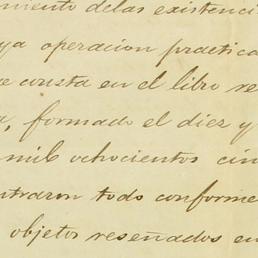 miento delas existenci
ya operacion practica
e consta en el libro re
a, formado el diez y
mil ochocientos cin
ntraron todo conforme
objetos reseñados en